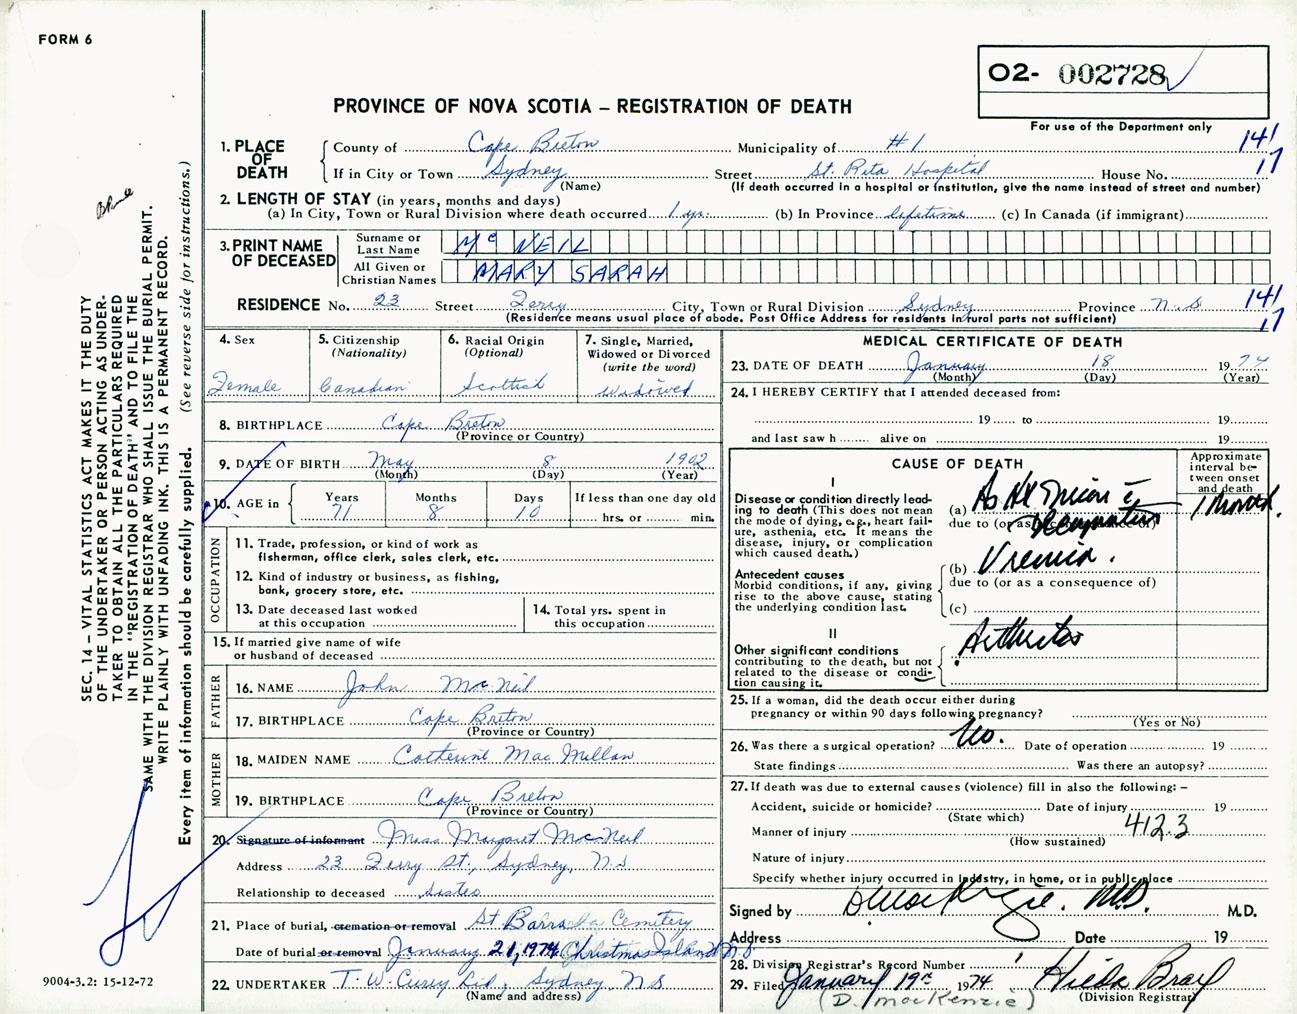 FORM 6
O2- 002728
PROVINCE OF NOVA SCOTIA – REGISTRATION OF DEATH
For use of the Department only
1. PLACE OF DEATH
County of Cape Breton Municipality of #1 141
If in City or Town Sydney Street St. Rita Hospital House No. 17
(Name) (If death occurred in a hospital or institution, give the name instead of street and number)
2. LENGTH OF STAY (in years, months and days)
(a) In City, Town or Rural Division where death occurred 1 yr. (b) In Province lifetime (c) In Canada (if immigrant)
3. PRINT NAME OF DECEASED
Surname or Last Name Mc NEIL
All Given or Christian Names MARY SARAH
RESIDENCE No. 23 Street Ferry City, Town or Rural Division Sydney Province N.S 141
(Residence means usual place of abode. Post Office Address for residents in rural parts not sufficient) 17
4. Sex
Female
5. Citizenship (Nationality)
Canadian
6. Racial Origin (Optional)
Scottish
7. Single, Married, Widowed or Divorced (write the word)
widowed
8. BIRTHPLACE Cape Breton
(Province or Country)
9. DATE OF BIRTH May 8 1902
(Month) (Day) (Year)
10. AGE in Years Months Days If less than one day old
71 8 10 hrs. or min.
OCCUPATION
11. Trade, profession, or kind of work as fisherman, office clerk, sales clerk, etc.
12. Kind of industry or business, as fishing, bank, grocery store, etc.
13. Date deceased last worked at this occupation
14. Total yrs. spent in this occupation
15. If married give name of wife or husband of deceased
FATHER
16. NAME John McNeil
17. BIRTHPLACE Cape Breton
(Province or Country)
MOTHER
18. MAIDEN NAME Catherine MacMillan
19. BIRTHPLACE Cape Breton
(Province or Country)
20. Signature of informant Miss Margaret McNeil
Address 23 Ferry St., Sydney, N.S
Relationship to deceased sister
21. Place of burial, cremation or removal St Barra Cemetery
Date of burial or removal January 21, 1974 Christmas Island N.S
22. UNDERTAKER T. W. Curry Ltd, Sydney, N.S
(Name and address)
MEDICAL CERTIFICATE OF DEATH
23. DATE OF DEATH January 18 1974
(Month) (Day) (Year)
24. I HEREBY CERTIFY that I attended deceased from:
19 to 19
and last saw h alive on 19
CAUSE OF DEATH
Approximate interval between onset and death
I
Disease or condition directly leading to death (This does not mean the mode of dying, e.g., heart failure, asthenia, etc. It means the disease, injury, or complication which caused death.)
(a)
1 month.
due to (or as a consequence of)
Antecedent causes
Morbid conditions, if any, giving rise to the above cause, stating the underlying condition last.
(b) Uremia.
due to (or as a consequence of)
(c)
II
Other significant conditions contributing to the death, but not related to the disease or condition causing it.
Arthritis
25. If a woman, did the death occur either during pregnancy or within 90 days following pregnancy?
(Yes or No)
26. Was there a surgical operation? No. Date of operation 19
State findings Was there an autopsy?
27. If death was due to external causes (violence) fill in also the following: –
Accident, suicide or homicide? Date of injury 19
(State which)
Manner of injury 412.3
(How sustained)
Nature of injury
Specify whether injury occurred in industry, in home, or in public place
Signed by D MacKenzie. M.D. M.D.
Address Date 19
28. Division Registrar's Record Number
29. Filed January 19th 1974 Hilda Bray
(D. MacKenzie) (Division Registrar)
SEC. 14 – VITAL STATISTICS ACT MAKES IT THE DUTY
OF THE UNDERTAKER OR PERSON ACTING AS UNDER-
TAKER TO OBTAIN ALL THE PARTICULARS REQUIRED
IN THE "REGISTRATION OF DEATH" AND TO FILE THE
SAME WITH THE DIVISION REGISTRAR WHO SHALL ISSUE THE BURIAL PERMIT.
WRITE PLAINLY WITH UNFADING INK. THIS IS A PERMANENT RECORD.
Every item of information should be carefully supplied. (See reverse side for instructions.)
9004-3.2: 15-12-72